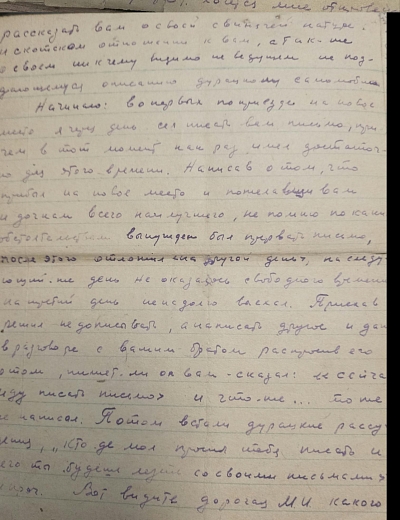 рассказать вам о своей свинячей натуре.
и скотском отношении к вам, а так-же
о своем ни к чему видимо не ведущем не под-
дающемуся описанию дурацкому самолюбию
Начинаю: во первых по приезде на новое
место я через день сел писать вам письмо, при-
чем в тот момент как раз имел достаточ-
но для этого времени. Написав о том, что
прибыл на новое место и пожелавши вам
и дочкам всего наилучшего, не помню по каким
обстоятельствам вынужден был прервать письмо,
после этого отложил на другой день, на следу-
ющий-же день не оказалось свободного времени
на третий день ненадолго выехал. Приехав
решил не дописывать, а написать другое и да
в разговоре с вашим братом расспросив его
о том, пишет-ли он вам - сказал: сейча
иду писать письмо и что-же... то же
не написал. Потом встали дурацкие рассу
дения, "кто-де мол просил тебя писать и
чего ты будешь лезть со своими письмами"
и проч. Вот видите дорогая М.И. какого